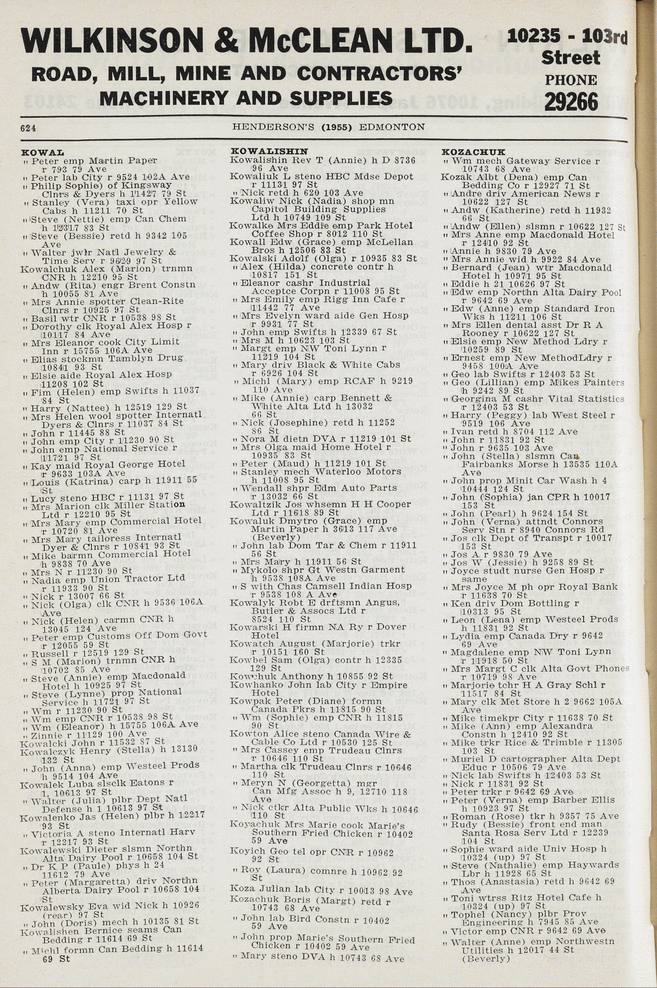 WILKINSON & McCLEAN LTD.
ROAD, MILL, MINE AND CONTRACTORS'
MACHINERY AND SUPPLIES
10235 - 103rd
Street
PHONE
29266
624
HENDERSON'S (1955) EDMONTON
KOWAL
" Peter emp Martin Paper
r 793 79 Ave
" Peter lab City r 9524 102A Ave
" Philip Sophie) of Kingsway
Clnrs & Dyers h 11427 79 St
" Stanley (Vera) taxi opr Yellow
Cabs h 11211 70 St
" Steve (Nettie) emp Can Chem
h 12317 83 St
" Steve (Bessie) retd h 9342 105
Ave
" Walter jwlr Natl Jewelry &
Time Serv r 9629 97 St
Kowalchuk Alex (Marion) trnmn
CNR h 12210 95 St
" Andw (Rita) engr Brent Constn
h 10055 81 Ave
" Mrs Annie spotter Clean-Rite
Clnrs r 10925 97 St
" Basil wtr CNR r 10538 98 St
" Dorothy clk Royal Alex Hosp r
10117 84 Ave
" Mrs Eleanor cook City Limit
Inn r 15755 106A Ave
" Elias stockmn Tamblyn Drug
10841 93 St
" Elsie aide Royal Alex Hosp
11208 102 St
" Fim (Helen) emp Swifts h 11037
84 St
" Harry (Nattee) h 12519 129 St
" Mrs Helen wool spotter Internatl
Dyers & Clnrs r 11037 84 St
" John r 11445 88 St
" John emp City r 11230 90 St
" John emp National Service r
11721 97 St
" Kay maid Royal George Hotel
r 9633 103A Ave
" Louis (Katrina) carp h 11911 55
St
" Lucy steno HBC r 11131 97 St
" Mrs Marion clk Miller Station
Ltd r 12210 95 St
" Mrs Mary emp Commercial Hotel
r 10720 81 Ave
" Mrs Mary tailoress Internatl
Dyer & Clnrs r 10841 93 St
" Mike barmn Commercial Hotel
h 9838 70 Ave
" Mrs N r 11230 90 St
" Nadia emp Union Tractor Ltd
r 11933 90 St
" Nick r 13007 66 St
" Nick (Olga) clk CNR h 9536 106A
Ave
" Nick (Helen) carmn CNR h
13045 124 Ave
" Peter emp Customs Off Dom Govt
r 12055 59 St
" Russell r 12519 129 St
" S M (Marion) trnmn CNR h
10702 85 Ave
" Steve (Annie) emp Macdonald
Hotel h 10925 97 St
" Steve (Lynne) prop National
Service h 11721 97 St
" Wm r 11230 90 St
" Wm emp CNR r 10538 98 St
" Wm (Eleanor) h 15755 106A Ave
" Zinnie r 11129 100 Ave
Kowalcki John r 11532 87 St
Kowalczyk Henry (Stella) h 13130
132 St
" John (Anna) emp Westeel Prods
h 9514 104 Ave
Kowalek Luba slsclk Eatons r
1, 10613 97 St
" Walter (Julia) plbr Dept Natl
Defense h 1 10613 97 St
Kowalenko Jas (Helen) plbr h 12217
93 St
" Victoria A steno Internatl Harv
r 12217 93 St
Kowalewski Dieter slsmn Northn
Alta Dairy Pool r 10658 104 St
" Dr K P (Paule) phys h 24
11612 79 Ave
" Peter (Margaretta) driv Northn
Alberta Dairy Pool r 10658 104
St
Kowalewsky Eva wid Nick h 10926
(rear) 97 St
" John (Doris) mech h 10135 81 St
Kowalishen Bernice seams Can
Bedding r 11614 69 St
" Michl formn Can Bedding h 11614
69 St
KOWALISHIN
Kowalishin Rev T (Annie) h D 8736
96 Ave
Kowaliuk L steno HBC Mdse Depot
r 11131 97 St
" Nick retd h 620 103 Ave
Kowaliw Nick (Nadia) shop mn
Capitol Building Supplies
Ltd h 10749 109 St
Kowalke Mrs Eddie emp Park Hotel
Coffee Shop r 8012 110 St
Kowall Edw (Grace) emp McLellan
Bros h 12506 83 St
Kowalski Adolf (Olga) r 10935 83 St
" Alex (Hilda) concrete contr h
10817 151 St
" Eleanor cashr Industrial
Acceptce Corpn r 11008 95 St
" Mrs Emily emp Rigg Inn Cafe r
11442 77 Ave
" Mrs Evelyn ward aide Gen Hosp
r 9931 77 St
" John emp Swifts h 12339 67 St
" Mrs M h 10623 103 St
" Margt emp NW Toni Lynn r
11219 104 St
" Mary driv Black & White Cabs
r 6926 104 St
" Michl (Mary) emp RCAF h 9219
110 Ave
" Mike (Annie) carp Bennett &
White Alta Ltd h 13032
66 St
" Nick (Josephine) retd h 11252
86 St
" Nora M dietn DVA r 11219 101 St
" Mrs Olga maid Home Hotel r
10935 83 St
" Peter (Maud) h 11219 101 St
" Stanley mech Waterloo Motors
h 11008 95 St
" Wendall shpr Edm Auto Parts
r 13032 66 St
Kowaltzik Jos whsemn H H Cooper
Ltd r 11618 89 St
Kowaluk Dmytro (Grace) emp
Martin Paper h 3613 117 Ave
(Beverly)
" John lab Dom Tar & Chem r 11911
56 St
" Mrs Mary h 11911 56 St
" Mykolo shpr Gt Westn Garment
h 9538 108A Ave
" S with Chas Camsell Indian Hosp
r 9538 108 A Ave
Kowalyk Robt E drftsmn Angus,
Butler & Assocs Ltd r
8524 110 St
Kowarski H firmn NA Ry r Dover
Hotel
Kowatch August (Marjorie) trkr
r 10151 160 St
Kowbel Sam (Olga) contr h 12335
129 St
Kowchuk Anthony h 10855 92 St
Kowhanko John lab City r Empire
Hotel
Kowpak Peter (Diane) formn
Canada Pkrs h 11815 90 St
" Wm (Sophie) emp CNR h 11815
90 St
Kowton Alice steno Canada Wire &
Cable Co Ltd r 10530 125 St
" Mrs Cassey emp Trudeau Clnrs
r 10646 110 St
" Martha clk Trudeau Clnrs r 10646
110 St
" Meryn N (Georgetta) mgr
Can Mfg Assoc h 9, 12710 118
Ave
" Nick ctkr Alta Public Wks h 10646
110 St
Koyachuk Mrs Marie cook Marie's
Southern Fried Chicken r 10402
59 Ave
Koyich Geo tel opr CNR r 10962
92 St
" Roy (Laura) comnre h 10962 92
St
Koza Julian lab City r 10013 98 Ave
Kozachuk Boris (Margt) retd r
10743 68 Ave
" John lab Bird Constn r 10402
59 Ave
" John prop Marie's Southern Fried
Chicken r 10402 59 Ave
" Mary steno DVA h 10743 68 Ave
KOZACHUK
" Wm mech Gateway Service r
10743 68 Ave
Kozak Albt (Dena) emp Can
Bedding Co r 12927 71 St
" Andre driv American News r
10622 127 St
" Andw (Katherine) retd h 11932
66 St
" Andw (Ellen) slsmn r 10622 127 St
" Mrs Anne emp Macdonald Hotel
r 12410 92 St
" Annie h 9830 79 Ave
" Mrs Annie wid h 9922 84 Ave
" Bernard (Jean) wtr Macdonald
Hotel h 10971 95 St
" Eddie h 21 10626 97 St
" Edw emp Northn Alta Dairy Pool
r 9642 69 Ave
" Edw (Anne) emp Standard Iron
Wks h 11211 106 St
" Mrs Ellen dental asst Dr R A
Rooney r 10622 127 St
" Elsie emp New Method Ldry r
10259 89 St
" Ernest emp New MethodLdry r
9458 100A Ave
" Geo lab Swifts r 12403 53 St
" Geo (Lillian) emp Mikes Painters
h 9242 89 St
" Georgina M cashr Vital Statistics
r 12403 53 St
" Harry (Peggy) lab West Steel r
9519 106 Ave
" Ivan retd h 8704 112 Ave
" John r 11831 92 St
" John r 9635 103 Ave
" John (Stella) slsmn Can
Fairbanks Morse h 13535 110A
Ave
" John prop Minit Car Wash h 4
10444 124 St
" John (Sophia) jan CPR h 10017
153 St
" John (Pearl) h 9624 154 St
" John (Verna) attndt Connors
Serv Stn r 8940 Connors Rd
" Jos clk Dept of Transpt r 10017
153 St
" Jos A r 9830 79 Ave
" Jos W (Jessie) h 9258 89 St
" Joyce studt nurse Gen Hosp r
same
" Mrs Joyce M ph opr Royal Bank
r 11638 70 St
" Ken driv Dom Bottling r
10313 95 St
" Leon (Lena) emp Westeel Prods
h 11831 92 St
" Lydia emp Canada Dry r 9642
69 Ave
" Magdalene emp NW Toni Lynn
r 11918 50 St
" Mrs Margt C clk Alta Govt Phones
r 10719 98 Ave
" Marjorie tchr H A Gray Schl r
11517 84 St
" Mary clk Met Store h 2 9662 105A
Ave
" Mike timekpr City r 11638 70 St
" Mike (Ann) emp Alexandra
Constn h 12410 92 St
" Mike trkr Rice & Trimble r 11305
103 St
" Muriel D cartographer Alta Dept
Educ r 10506 79 Ave
" Nick lab Swifts h 12403 53 St
" Nick r 11831 92 St
" Peter trkr r 9642 69 Ave
" Peter (Verna) emp Barber Ellis
h 10923 97 St
" Roman (Rose) tkr h 9357 75 Ave
" Rudy (Bessie) front end man
Santa Rosa Serv Ltd r 12239
104 St
" Sophie ward aide Univ Hosp h
10324 (up) 97 St
" Steve (Nathalie) emp Haywards
Lbr h 11928 65 St
" Thos (Anastasia) retd h 9642 69
Ave
" Toni wtrss Ritz Hotel Cafe h
10324 (up) 97 St
" Tophel (Nancy) plbr Prov
Engineering h 7945 85 Ave
" Victor emp CNR r 9642 69 Ave
" Walter (Anne) emp Northwestn
Utilities h 12017 44 St
(Beverly)